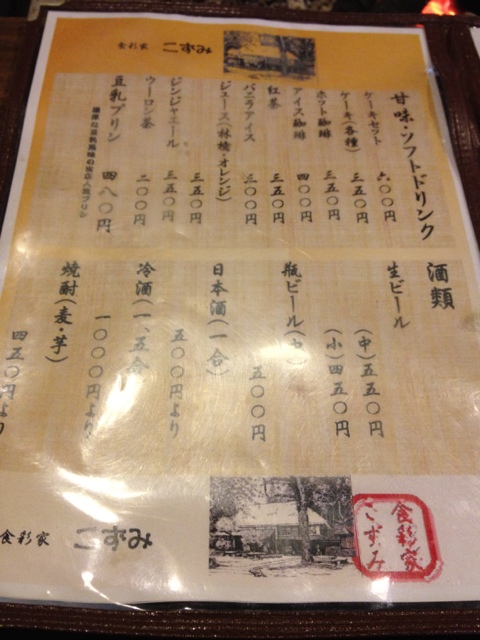 食彩家 こずみ
甘味・ソフトドリンク
ケーキセット 六〇〇円
ケーキ(各種) 三五〇円
ホット珈琲 三五〇円
アイス珈琲 四〇〇円
紅茶 三五〇円
バニラアイス 三〇〇円
ジュース(林檎・オレンジ) 三五〇円
ジンジャエール 三五〇円
ウーロン茶 二〇〇円
豆乳プリン 四八〇円
濃厚な豆乳風味の当店人気プリン
酒類
生ビール
(中)五五〇円
(小)四五〇円
瓶ビール(中)
五〇〇円
日本酒(一合)
五〇〇円より
冷酒(一、五合)
一〇〇〇円より
焼酎(麦・芋)
四五〇円より
食彩家 こずみ
食彩家
こずみ